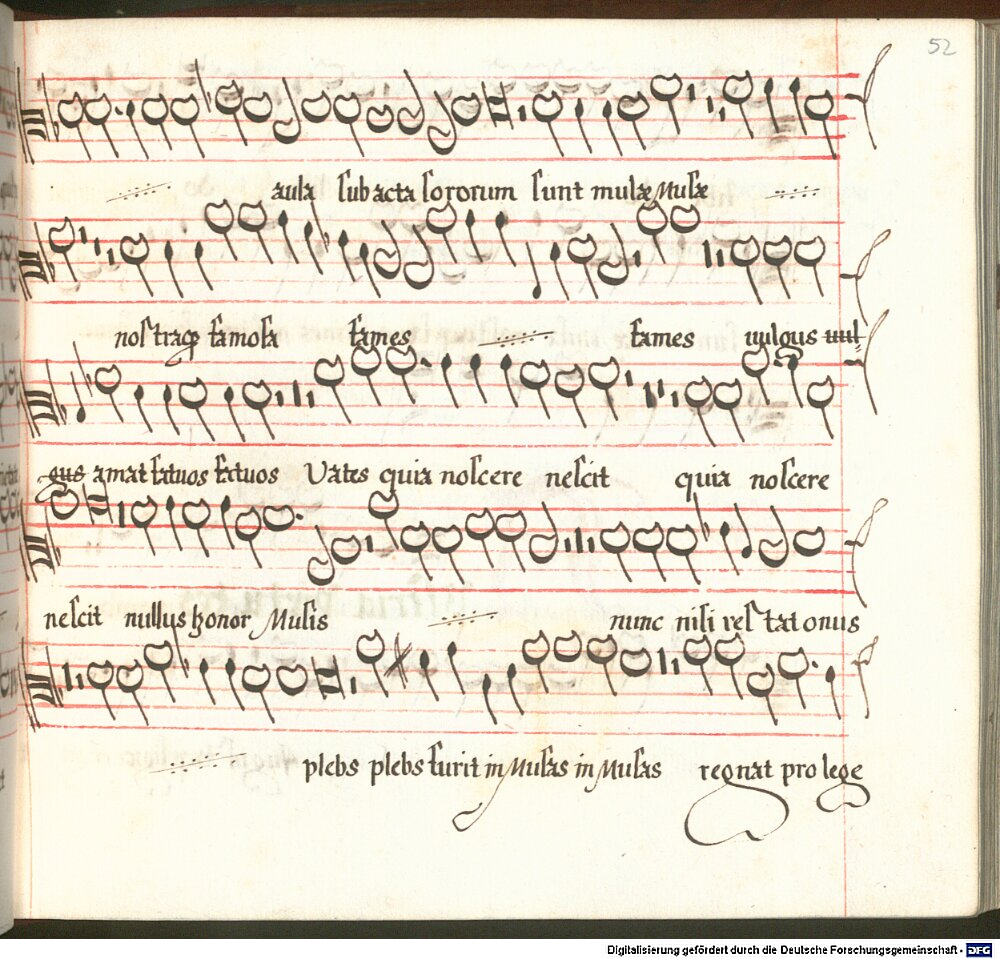 52
aula subacta sororum sunt mulæ Musæ
nostraq famosa fames fames uulgus uul-
gus amat fatuos fatuos Vates quia noscere nescit quia noscere
nescit nullus honor Musis nunc nisi res tat onus
plebs plebs furit in Musas in Musas regnat pro lege
Digitalisierung gefördert durch die Deutsche Forschungsgemeinschaft - DFG